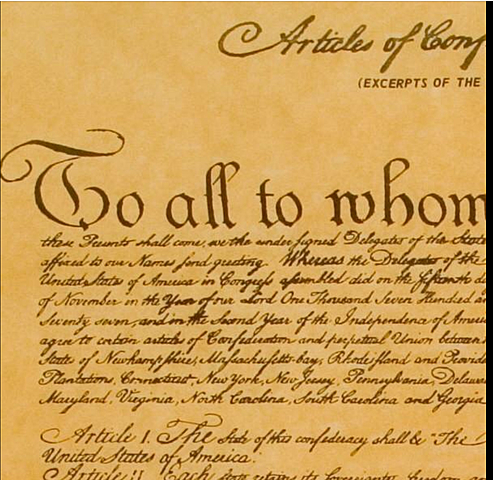 Articles of Conf
(EXCERPTS OF THE
To all to whom
these Presents shall come, we the under signed Delegates of the State
affixed to our Names send greeting. Whereas the Delegates of the
United States of America in Congress assembled did on the fifteenth da
of November in the Year of our Lord One Thousand Seven Hundred an
Seventy seven, and in the Second Year of the Independence of Ameri
agree to certain articles of Confederation and perpetual Union between
States of Newhampshire, Massachusetts-bay, Rhodeisland and Provid
Plantations, Connecticut, New York, New Jersey, Pennsylvania, Delawa
Maryland, Virginia, North Carolina, South Carolina and Georgia
Article I. The Stile of this confederacy shall be "The
United States of America."
Article II. Each state retains its Sovereignty, freedom an